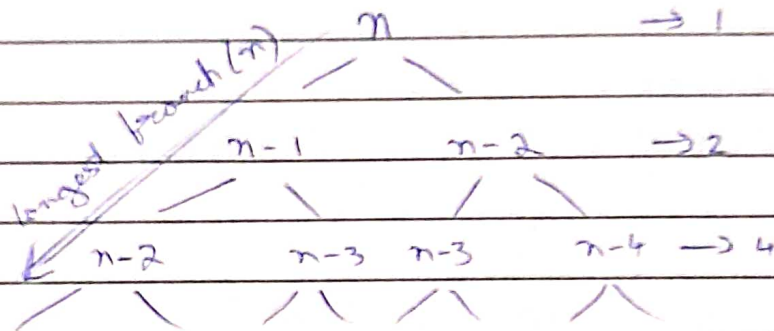 n → 1
longest branch (n)
n-1 n-2 → 2
n-2 n-3 n-3 n-4 → 4